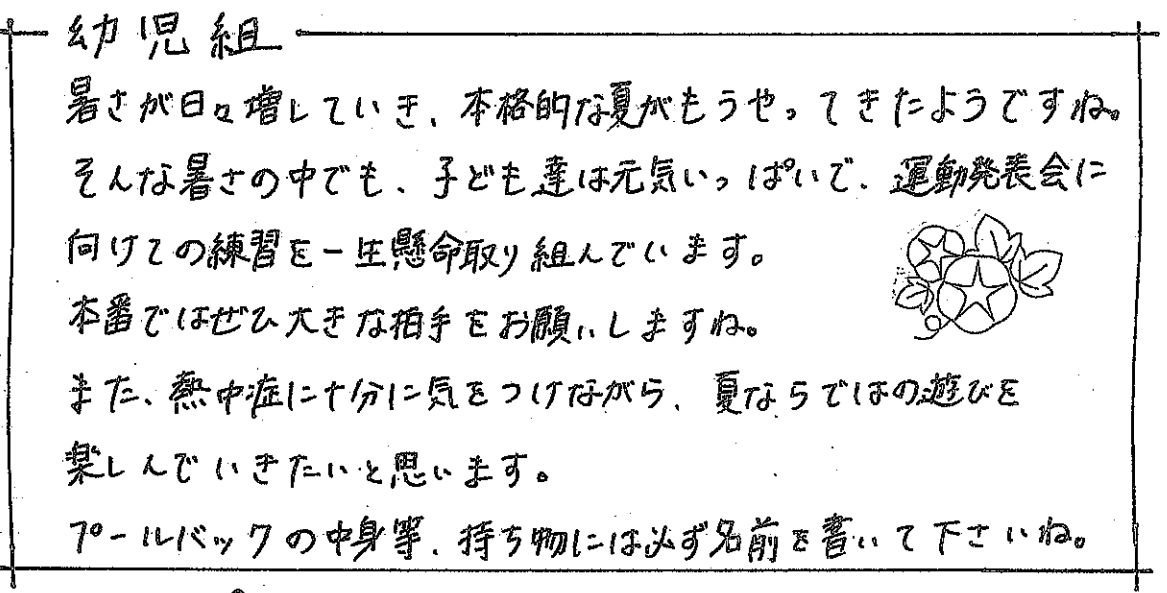 幼児組
暑さが日々増していき、本格的な夏がもうやってきたようですね。
そんな暑さの中でも、子ども達は元気いっぱいで、運動発表会に
向けての練習を一生懸命取り組んでいます。
本番ではぜひ大きな拍手をお願いしますね。
また、熱中症に十分に気をつけながら、夏ならではの遊びを
楽しんでいきたいと思います。
プールバックの中身等、持ち物には必ず名前を書いて下さいね。